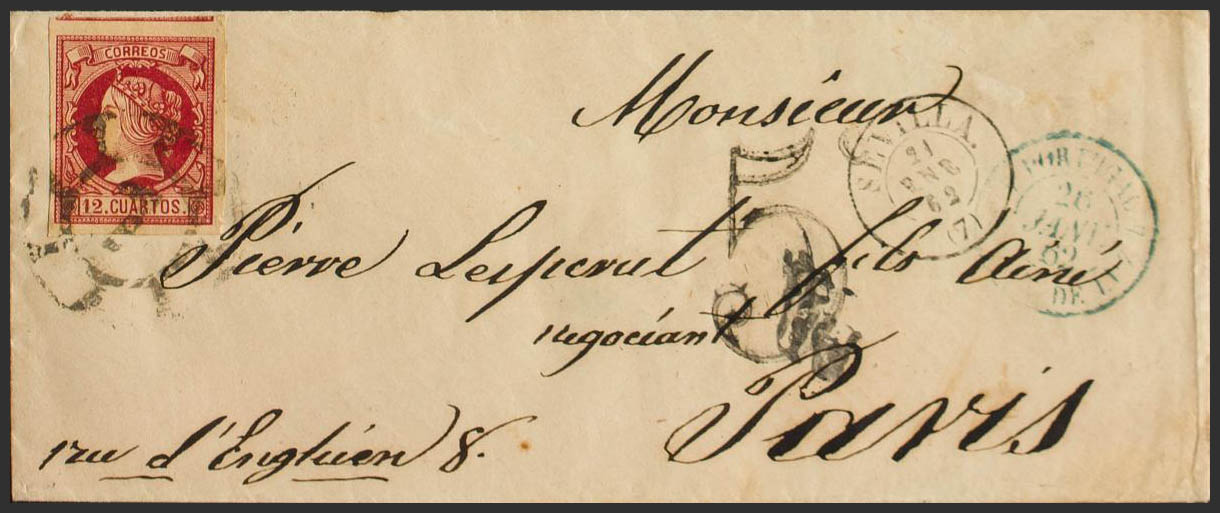 CORREOS
12. CUARTOS.
Monsieur
SEVILLA.
21
ENE
62
(7)
5
26
JANV
62
Pierre Lesperut fils Ainé
negociant
Paris
rue d'Enghien 8.